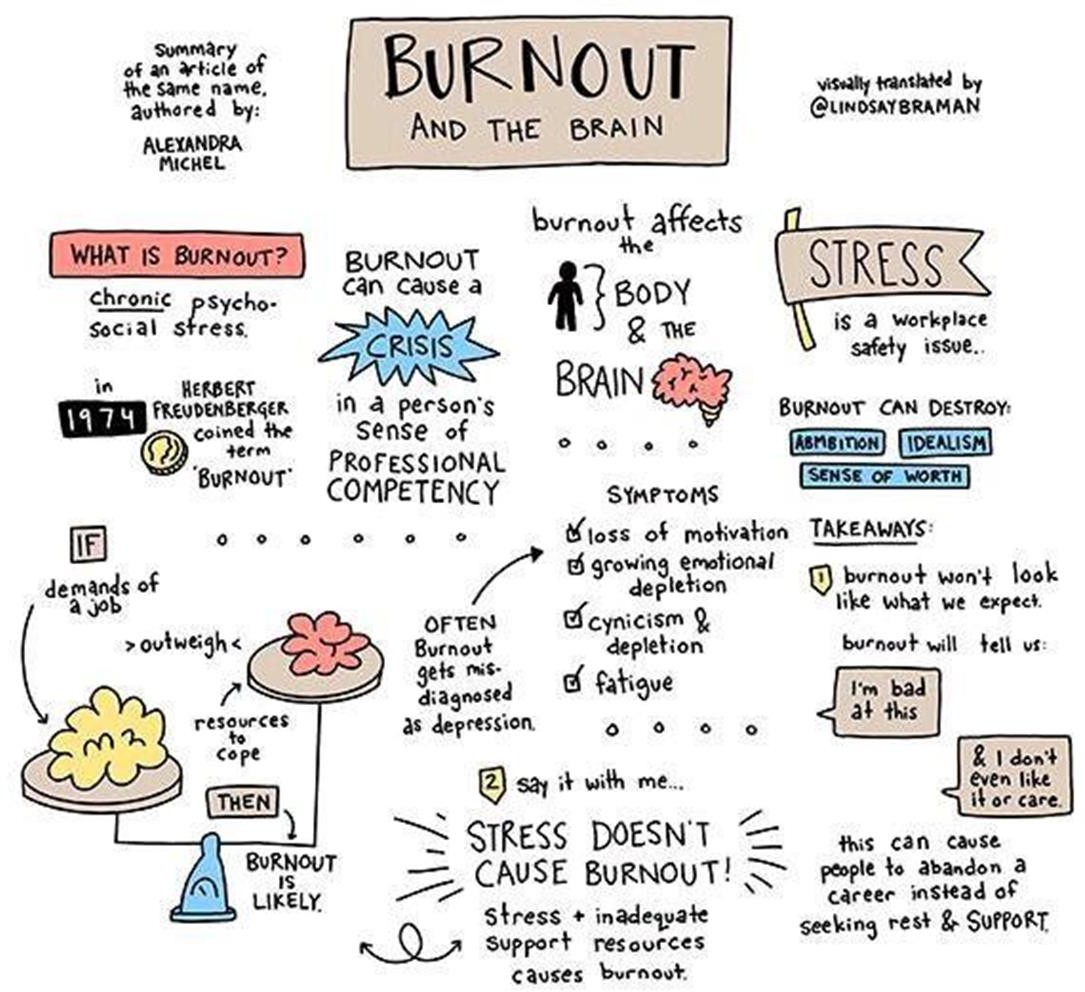 Summary
of an article of
the same name,
authored by:
ALEXANDRA
MICHEL
BURNOUT
AND THE BRAIN
visually translated by
@LINDSAYBRAMAN
WHAT IS BURNOUT?
chronic psycho-
social stress.
in
1974
HERBERT
FREUDENBERGER
coined the
term
'BURNOUT'
BURNOUT
can cause a
CRISIS
in a person's
sense of
PROFESSIONAL
COMPETENCY
burnout affects
the
BODY
& THE
BRAIN
STRESS
is a workplace
safety issue..
BURNOUT CAN DESTROY:
ABMBITION
IDEALISM
SENSE OF WORTH
IF
demands of
a job
>outweigh<
resources
to
cope
THEN
BURNOUT
IS
LIKELY.
OFTEN
Burnout
gets mis-
diagnosed
as depression.
SYMPTOMS
loss of motivation
growing emotional
depletion
cynicism &
depletion
fatigue
TAKEAWAYS:
1 burnout won't look
like what we expect.
burnout will tell us:
I'm bad
at this
& I don't
even like
it or care.
this can cause
people to abandon a
career instead of
seeking rest & SUPPORT.
2 say it with me...
STRESS DOESN'T
CAUSE BURNOUT!
stress + inadequate
support resources
causes burnout.